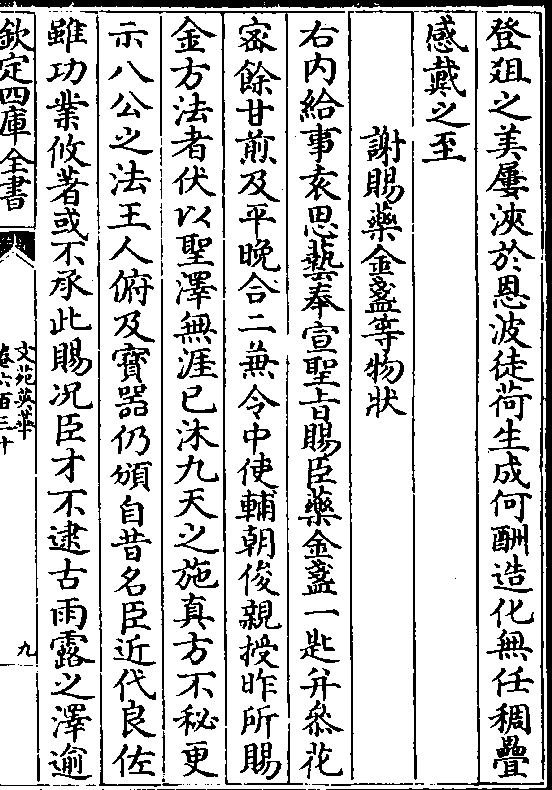 登俎之美屢浹於恩波徒荷生成何酬造化無任稠疊
感戴之至
謝賜藥金盞等物狀
右內給事袁思藝奉宣聖旨賜臣藥金盞一匙并參花
蜜餘甘煎及平晚合二兼令中使輔朝俊親授昨所賜
金方法者伏以聖澤無涯已沐九天之施真方不秘更
示八公之法王人俯及寶器仍頒自昔名臣近代良佐
雖功業攸著或不承此賜况臣才不逮古雨露之澤逾
欽定四庫全書
文苑英華
卷六百三十
九